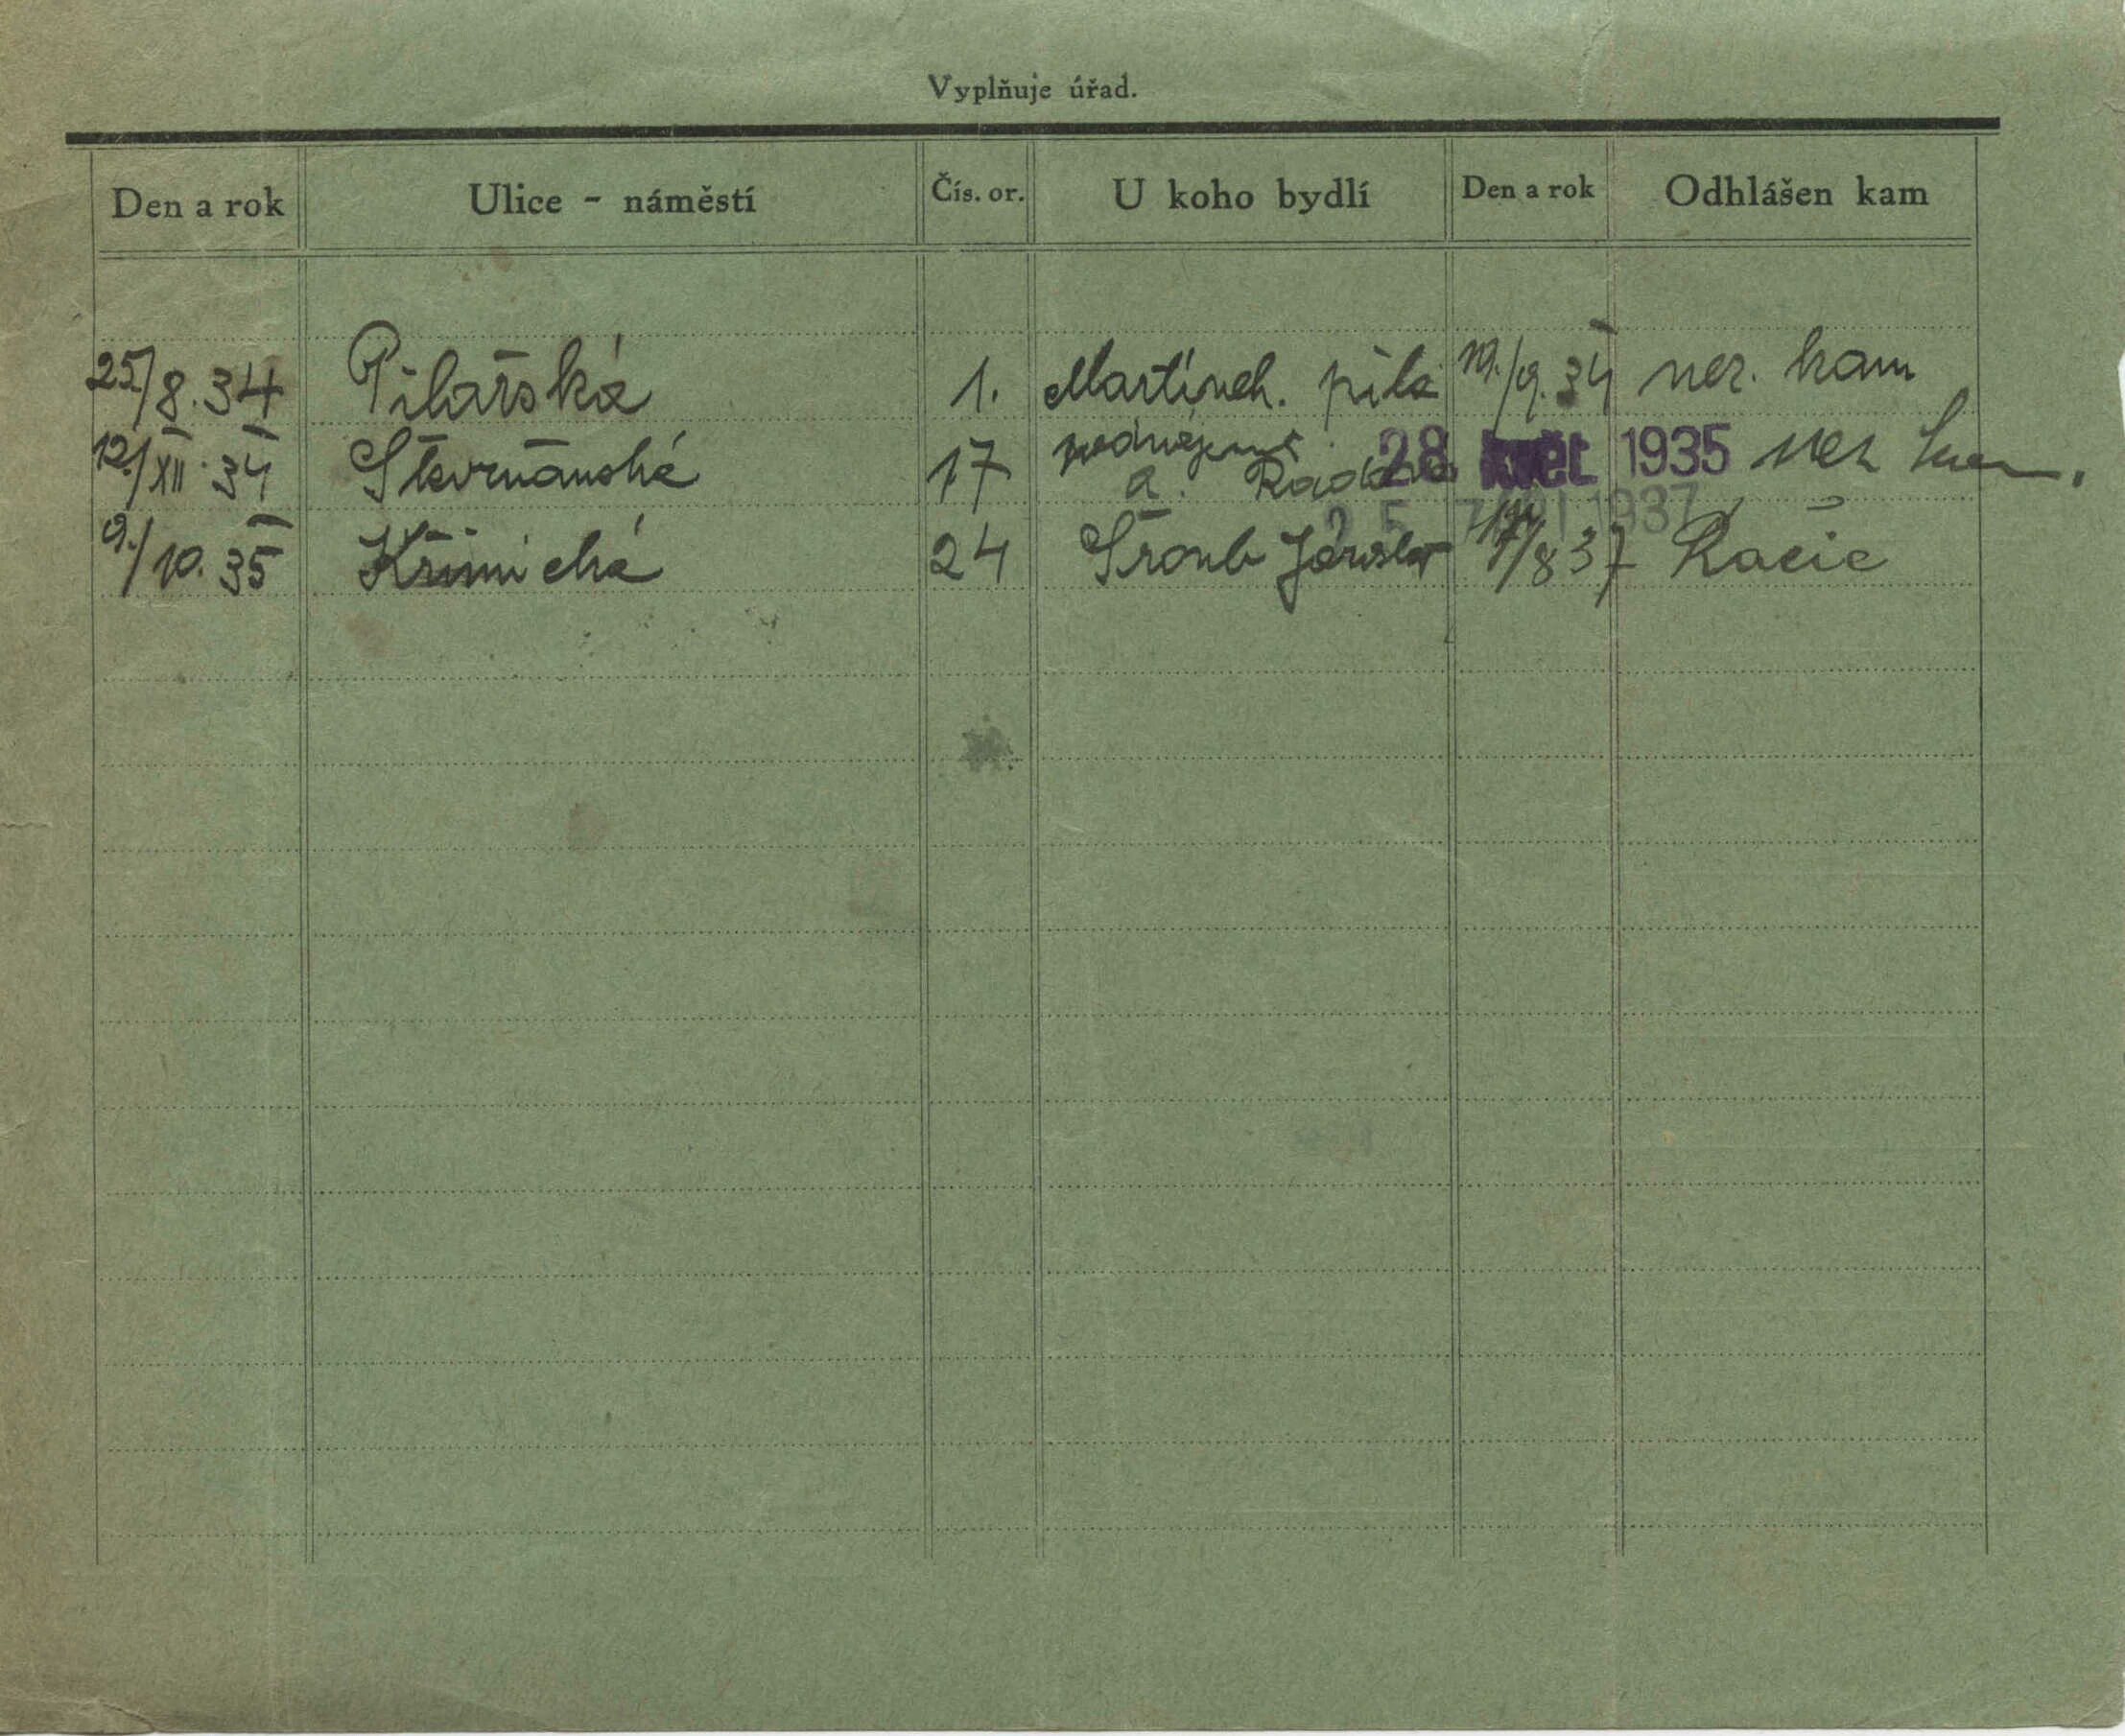 Vyplňuje úřad.
Den a rok Ulice - náměstí Čís. or. U koho bydlí Den a rok Odhlášen kam
25./8.34 Pilařská 1. Martinek. pila 19./9.34 nez. kam
12./XII.34 17 podnájemně 28 květ 1935 nez kam.
a.
25 1937
9./10.35 Křimická 24 Šroub Jaroslav 17/8 37